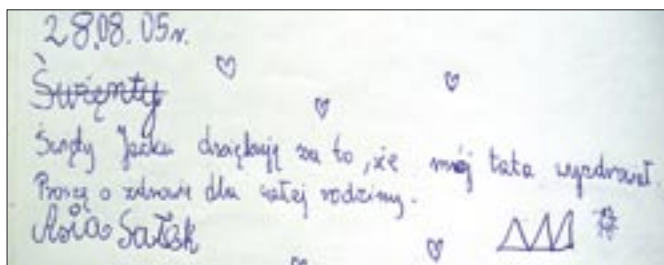 28.08.05r.
Święnty
Święty Jacku dziękuję za to, że mój tata wyzdrowiał.
Proszę o zdrowie dla całej rodziny.
Asia Sałek